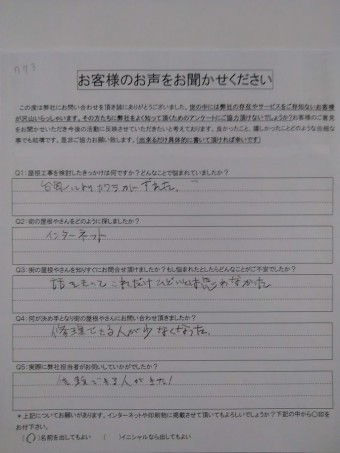 お客様のお声をお聞かせください
この度は弊社にお問い合わせを頂き誠にありがとうございました。世の中には弊社の存在やサービスをご存知ないお客様
が沢山いらっしゃいます。その方たちに弊社をよく知って頂くためのアンケートにご協力頂けないでしょうか？お客様のご意見
をお聞かせいただき今後の活動に反映させていただきたいと考えております。良かったこと、嬉しかったことどのような些細な
事でも結構です。是非ご協力お願い致します。「出来るだけ具体的に書いて頂ければ幸いです」
Q1：屋根工事を検討したきっかけは何ですか？どんなことで悩まれていましたか？
Q2：街の屋根やさんをどのように探しましたか？
インターネット
Q3：街の屋根やさんを知りすぐにお問合せ頂けましたか？もし悩まれたとしたらどんなことがご不安でしたか？
これだけひどいとは思わなかった
Q4：何が決め手となり街の屋根やさんにお問い合わせ頂きましたか？
修理できる人が少なくなった。
Q5：実際に弊社担当者がお伺いしていかがでしたか？
信頼できる人がきた！
＊上記についてお願いがあります。インターネットや印刷物に掲載させて頂いてもよろしいでしょうか？下記の中から〇印を
お付下さい。
(〇)名前を出してもよい ( )イニシャルなら出してもよい